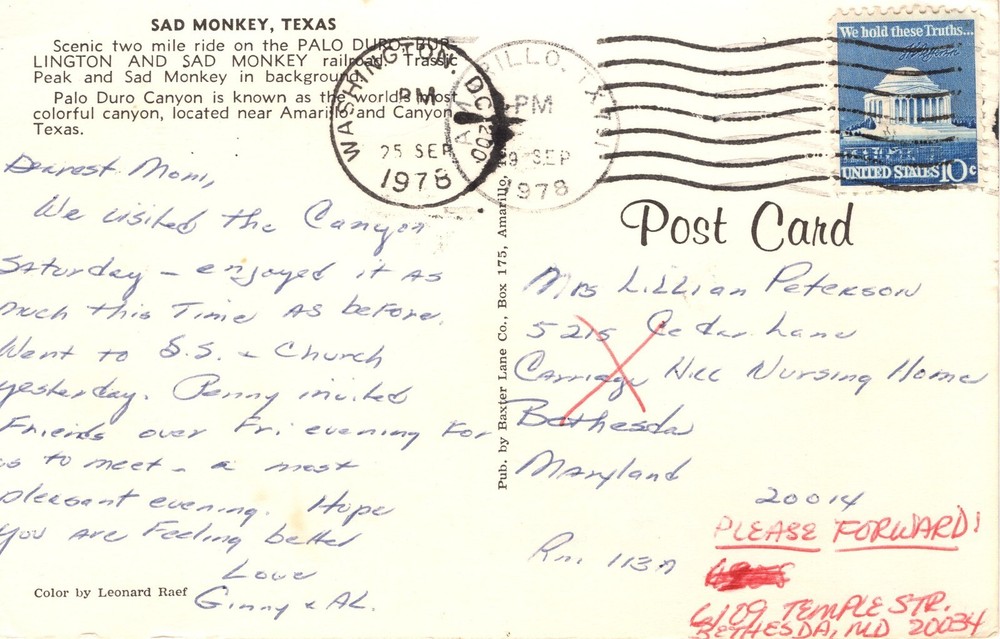 SAD MONKEY, TEXAS
Scenic two mile ride on the PALO DURO, BUR-
LINGTON AND SAD MONKEY railroad. Trassic
Peak and Sad Monkey in background.
Palo Duro Canyon is known as the world's most
colorful canyon, located near Amarillo and Canyon,
Texas.
Dearest Mom,
We visited the Canyon
Saturday - enjoyed it as
much this Time as before.
Went to S.S. & Church
yesterday. Penny invited
Friends over Fri. evening For
us to meet - a most
pleasant evening. Hope
You are Feeling better
Love
Ginny & AL.
Color by Leonard Raef
Pub. by Baxter Lane Co., Box 175, Amarillo,
WASHINGTON, DC 200
PM
25 SEP
1978
PM
SEP
1978
We hold these Truths...
UNITED STATES 10c
Post Card
Mrs Lillian Peterson
5215 Cedar Lane
Carriage Hill Nursing Home
Bethesda
Maryland
20014
Rm 113A
PLEASE FORWARD!
6109 TEMPLE STR.
BETHESDA, MD 20034